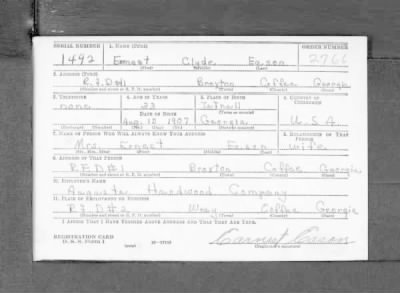 SERIAL NUMBER 1. NAME (Print) ORDER NUMBER
1492 Ernest Clyde Eason 2766
(First) (Middle) (Last)
2. ADDRESS (Print)
R.F.D#1 Broxton Coffee Georgia
(Number and street or R. F. D. number) (Town) (County) (State)
3. TELEPHONE 4. AGE IN YEARS 5. PLACE OF BIRTH 6. COUNTRY OF CITIZENSHIP
none 33 Tattnall
DATE OF BIRTH (Town or county)
Aug. 10 1907 Georgia U.S.A.
(Exchange) (Number) (Mo.) (Day) (Yr.) (State or country)
7. NAME OF PERSON WHO WILL ALWAYS KNOW YOUR ADDRESS 8. RELATIONSHIP OF THAT PERSON
Mrs. Ernest Eason wife
(Mr., Mrs., Miss) (First) (Middle) (Last)
9. ADDRESS OF THAT PERSON
R.F.D#1 Broxton Coffee Georgia
(Number and street or R. F. D. number) (Town) (County) (State)
10. EMPLOYER'S NAME
Augusta Hardwood Company
11. PLACE OF EMPLOYMENT OR BUSINESS
R.F.D.#2 Wray Coffee Georgia
(Number and street or R. F. D. number) (Town) (County) (State)
I AFFIRM THAT I HAVE VERIFIED ABOVE ANSWERS AND THAT THEY ARE TRUE.
REGISTRATION CARD
D. S. S. FORM 1 Earnest Eason
(Registrant's signature)